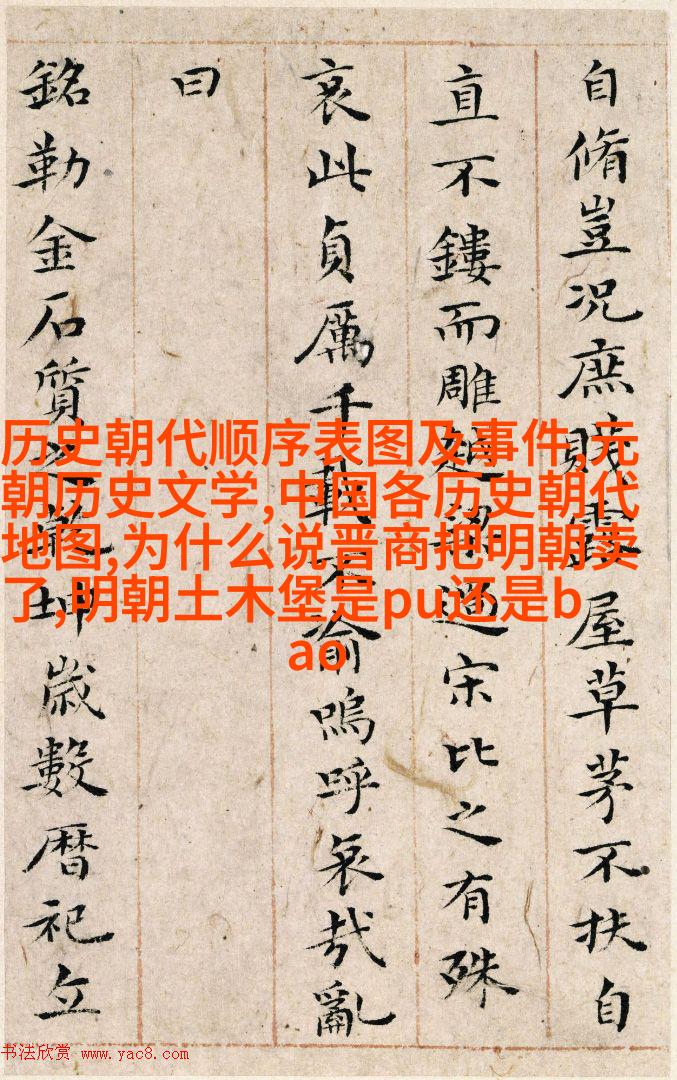 自脩豈況庶賤露屋草茅不扶自
直不鏤而雕越梁過宋比之有殊
哀此貞厲千載不渝嗚呼哀哉亂
曰
銘勒金石質之乾坤歲數曆祀立
历史朝代顺序表图及事件,元
朝历史文学,中国各历史朝代
地图,为什么说晋商把明朝卖
了,明朝土木堡是pu还是b
ao
书法欣赏 www.yac8.com